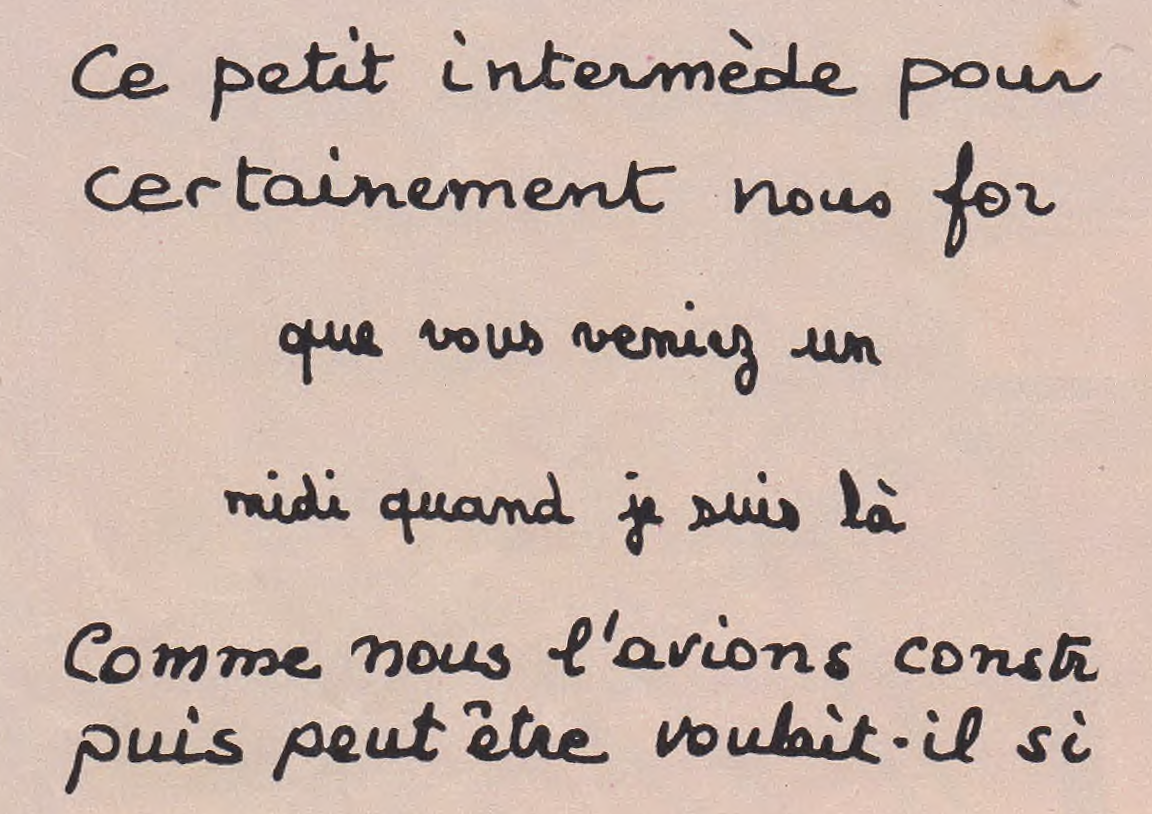 Ce petit intermède pour
certainement nous for
que vous veniez un
midi quand je suis là
Comme nous l'avions constr
puis peut être voulait-il si